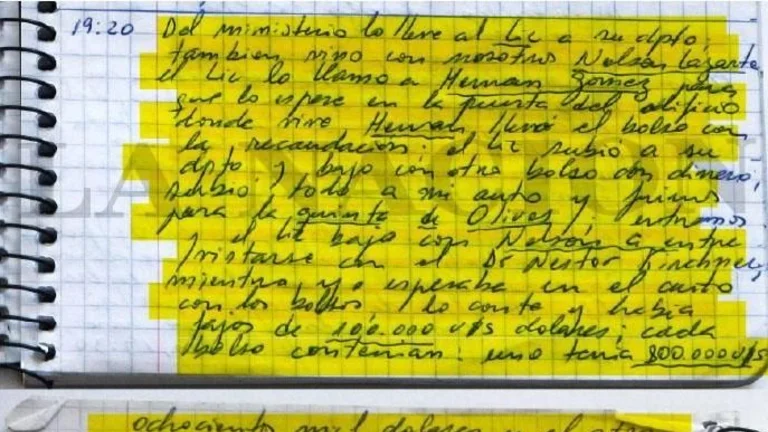 19:20 Del ministerio lo lleve al Lic a su dpto,
tambien vino con nosotros Nelson Lazarte,
el Lic lo llamo a Hernan Gomez para
que lo espere en la puerta del edificio
donde vive Hernan llevó el bolso con
la recaudación: el Lic subió a su
dpto. y bajo con otro bolso con dinero,
subio todo a mi auto y fuimos
para la quinta de Olivos y entramos
y el Lic bajo con Nelson a entre
vistarse con el Dr Nestor Kirchner,
mientras yo esperaba en el auto
con los bolsos, lo conte y había
fajos de 100.000 U$S dolares; cada
bolso contenian: uno tenia 800.000 U$S
ochocientos mil dolares y el otro
LA NACION